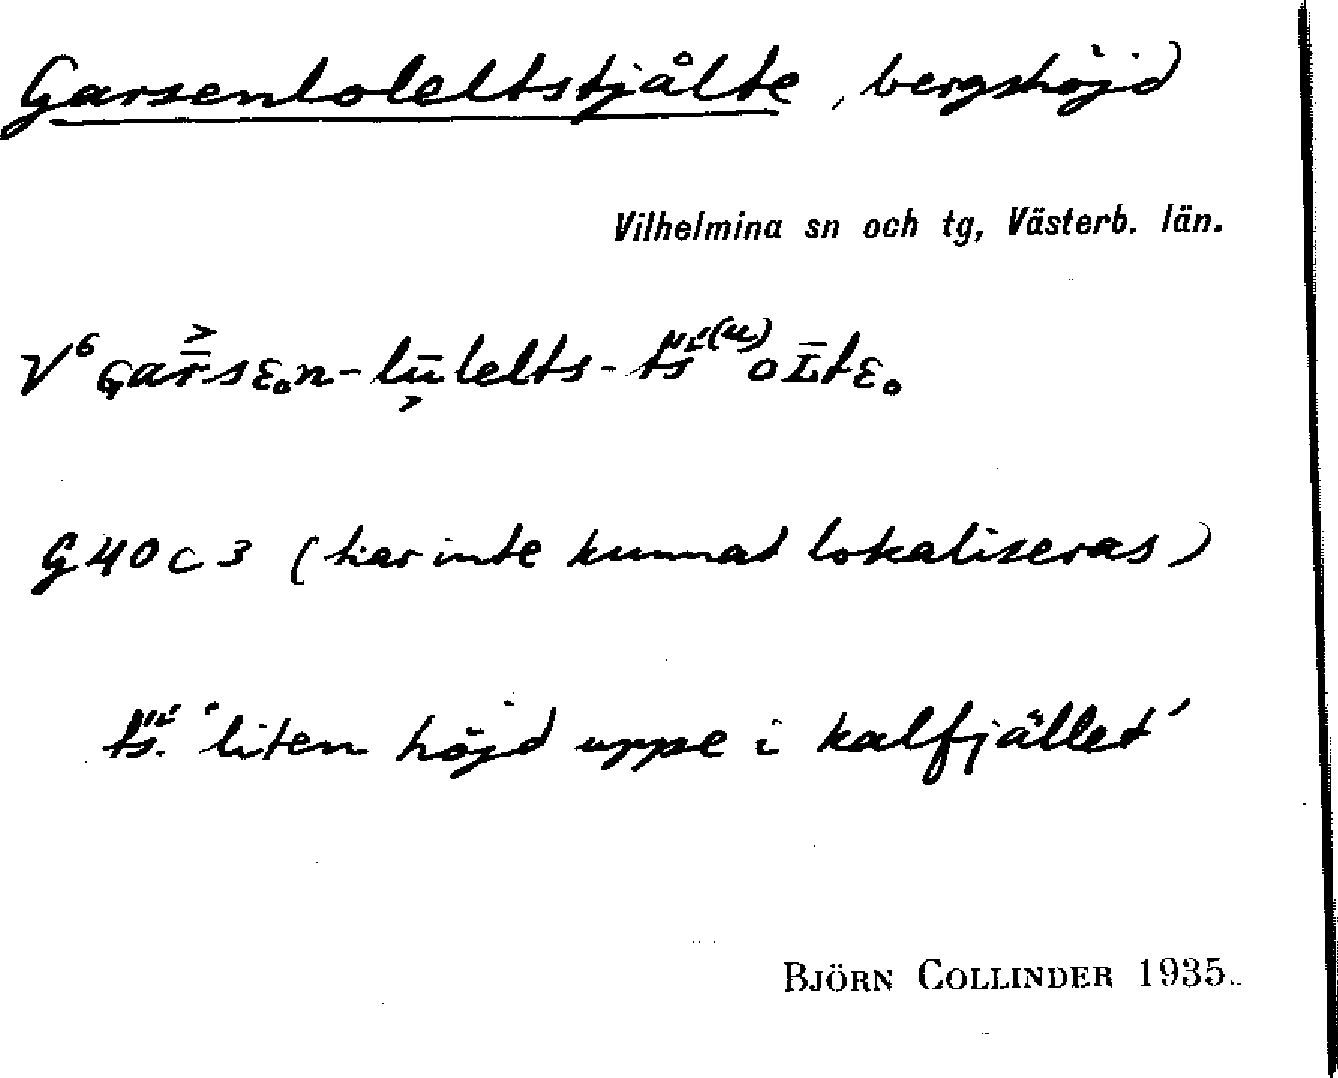 Garsenloleltstjålte, bergshöjd
Vilhelmina sn och tg, Västerb. län.
G 40 c 3 (har inte kunnat lokaliseras)
'liten höjd uppe i kalfjället'
BJÖRN COLLINDER 1935.